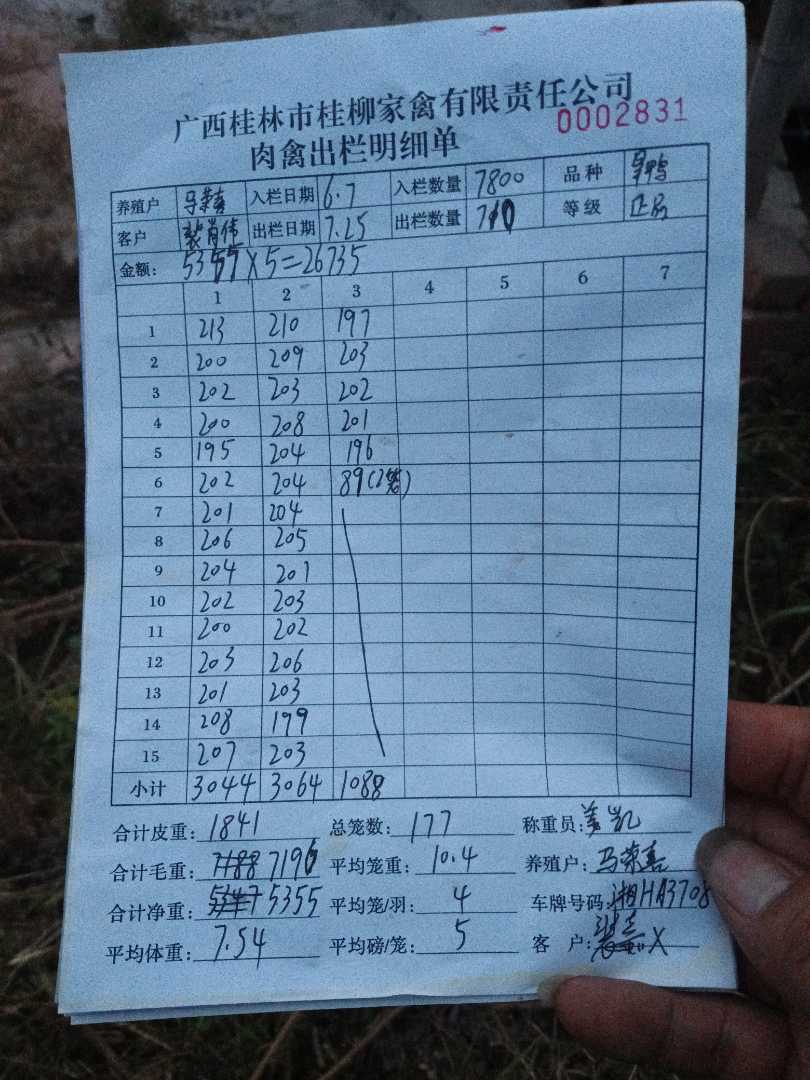 广西桂林市桂柳家禽有限责任公司
0002831
肉禽出栏明细单
养殖户 马荣喜 入栏日期 6.7 入栏数量 7800 品种
客户 裴肖伟 出栏日期 7.25 出栏数量 710 等级 正品
金额: 5355×5=26735
1 2 3 4 5 6 7
1 213 210 197
2 200 209 203
3 202 203 202
4 200 208 201
5 195 204 196
6 202 204 89(2笼)
7 201 204
8 206 205
9 204 201
10 202 203
11 200 202
12 203 206
13 201 203
14 208 199
15 207 203
小计 3044 3064 1088
合计皮重: 1841 总笼数: 177 称重员: 姜凯
合计毛重: 7188 7196 平均笼重: 10.4 养殖户: 马荣喜
合计净重: 5347 5355 平均笼/羽: 4 车牌号码: 湘HA3708
平均体重: 7.54 平均磅/笼: 5 客 户: